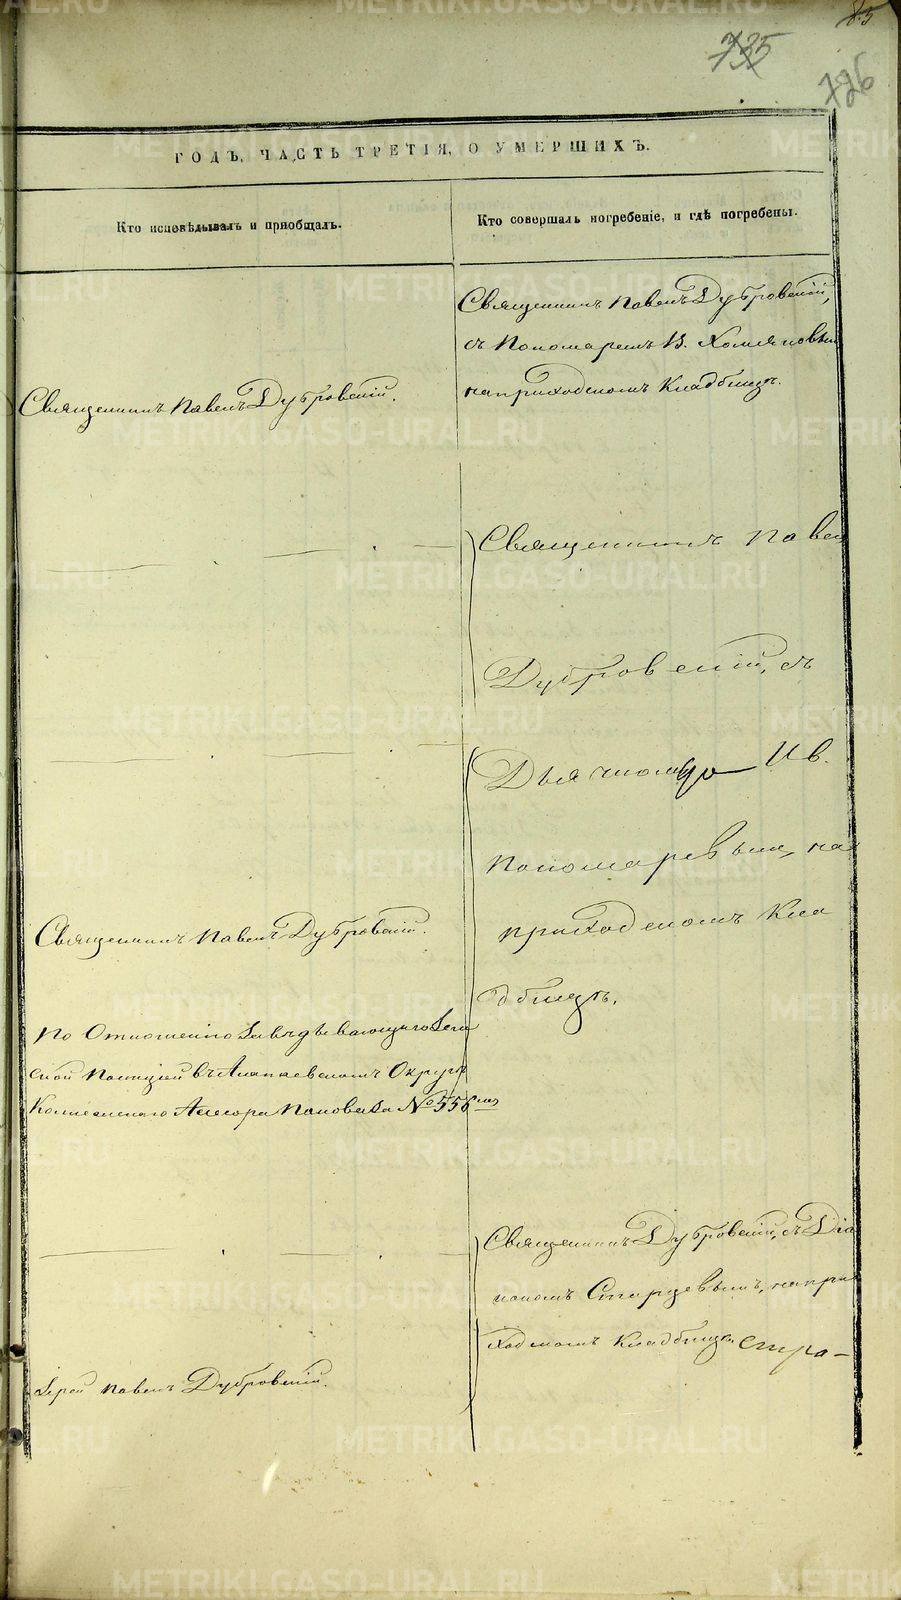 85
735
726
ГОДЪ, ЧАСТЬ ТРЕТІЯ, О УМЕРШИХЪ.
Кто исповѣдывалъ и пріобщалъ.
Кто совершалъ погребеніе, и гдѣ погребены.
Священникъ Павелъ Дубровскій,
съ Пономаремъ В. Хомяковым
на приходскомъ Кладбищѣ.
Священникъ Павелъ Дубровскій.
Священникъ Павел
Дубровскій, съ
Дьячкомъ Ив.
Пономаревым, на
приходскомъ Кла
дбищѣ.
Священникъ Павелъ Дубровскій.
По Отношенію Завѣдывающаго
ской Полиціей въ Алапаевскомъ Округѣ
Коллежскаго Ассесора Поповића № 556
Священникъ Дубровскій, съ Діа
кономъ Старцевымъ, на при
ходскомъ Кладбищѣ
Іерей Павелъ Дубровскій.
METRIKI.GASO-URAL.RU